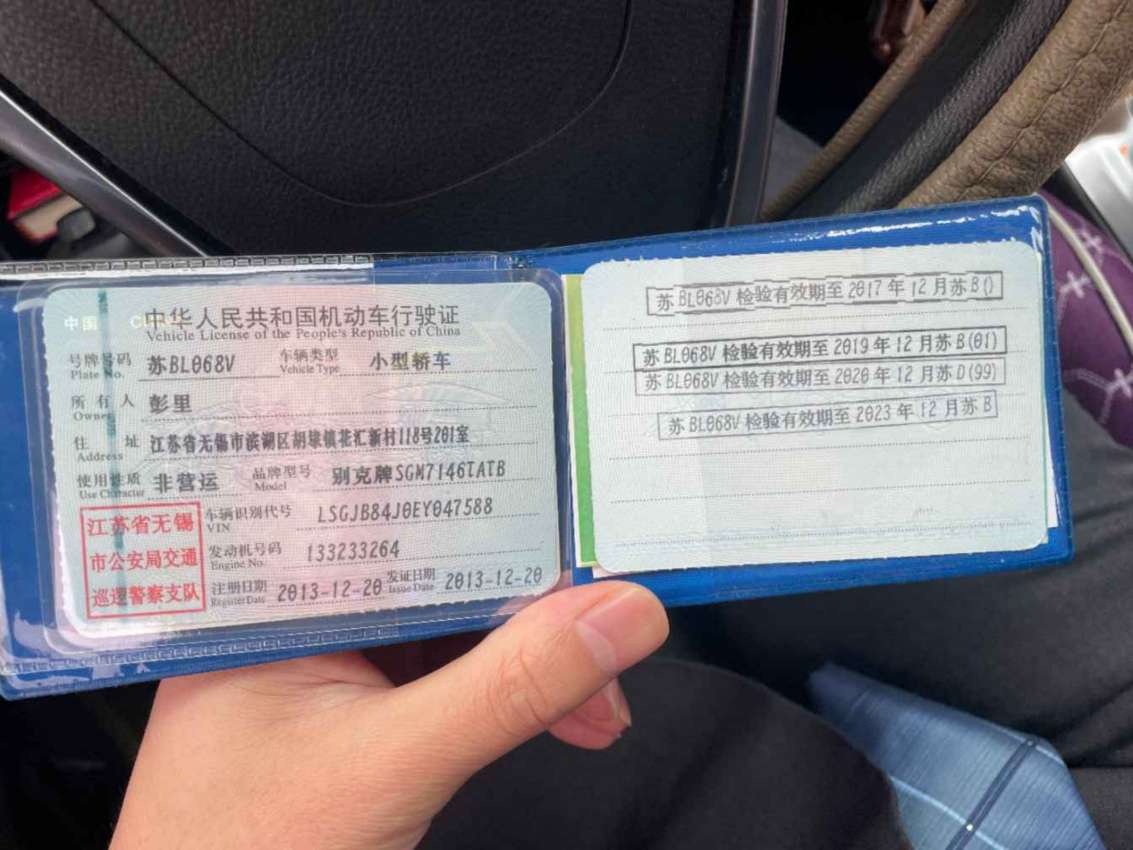 中华人民共和国机动车行驶证
Vehicle License of the People's Republic of China
号牌号码 苏BL068V 车辆类型 小型轿车
Plate No. Vehicle Type
所有人 彭里
Owner
住址 江苏省无锡市滨湖区胡埭镇花汇新村118号201室
Address
使用性质 非营运 品牌型号 别克牌SGM7146TATB
Use Character Model
江苏省无锡
市公安局交通
巡逻警察支队
车辆识别代号 LSGJB84J0EY047588
VIN
发动机号码 133233264
Engine No.
注册日期 2013-12-20 发证日期 2013-12-20
Register Date Issue Date
苏BL068V 检验有效期至 2017 年 12 月苏B()
苏BL068V 检验有效期至 2019 年 12 月苏B(01)
苏BL068V 检验有效期至 2020 年 12 月苏D(99)
苏BL068V 检验有效期至 2023 年 12 月苏B